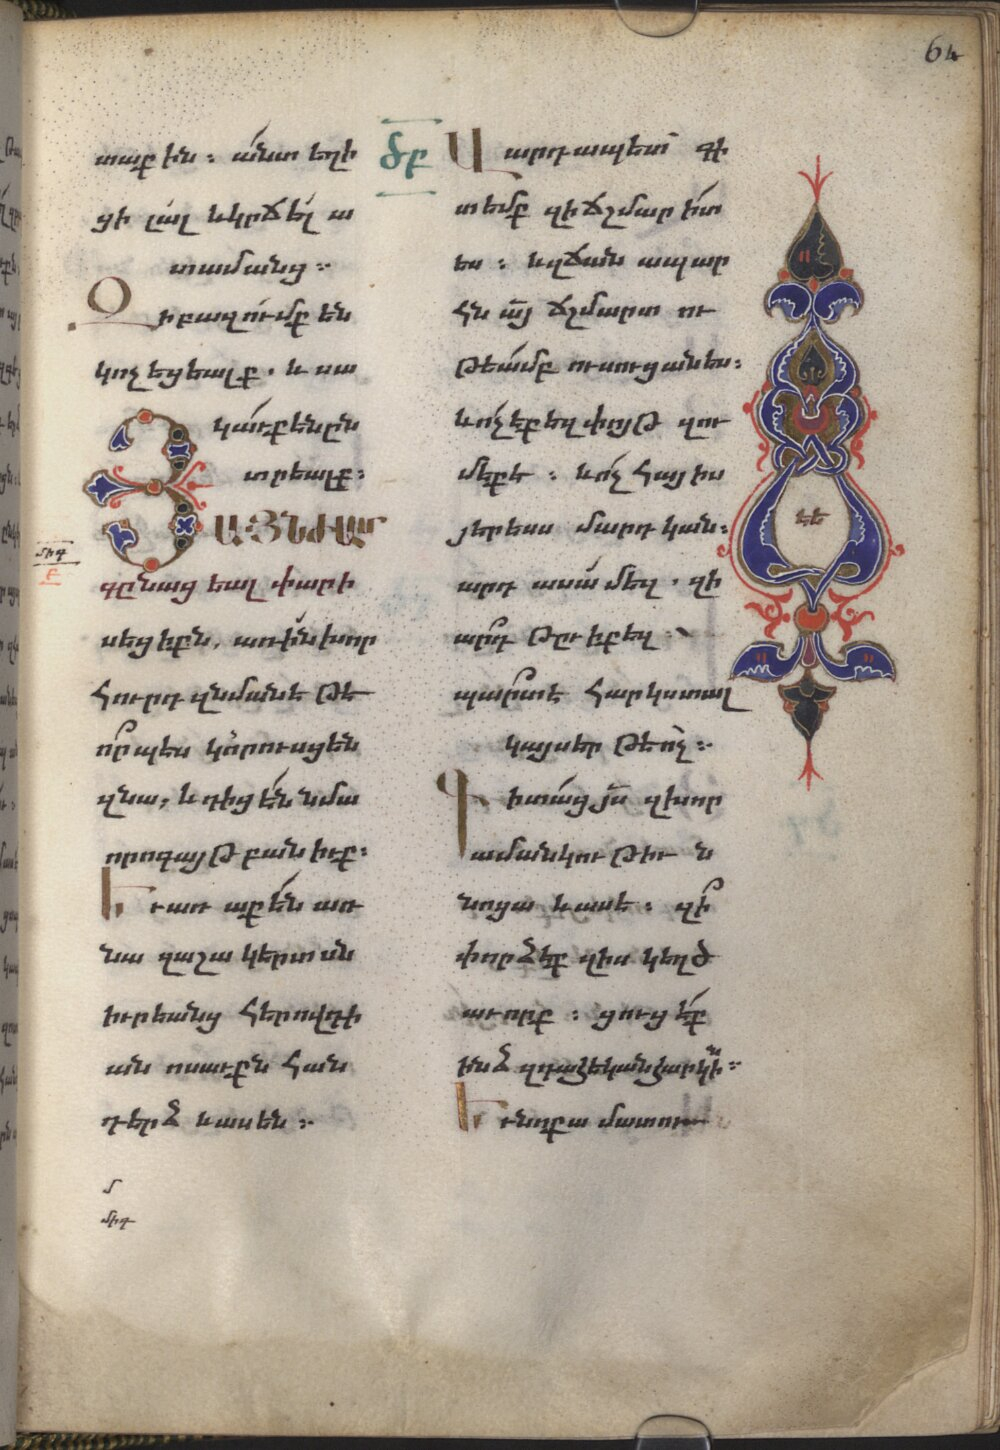 64
տաքին։ անտ եղի
ցի լալ և կրճել ա
տամանց։
Զի բազումք են
կոչեցեալք. և սա
կաւք են ընն
տրեալք։
ՅԱՅՆԺԱՄ
գընացեալ փարի
սեցիքն, առին խոր
հուրդ զնմանէ թէ
ո՞րպես կորուսցեն
զնա, և դիցեն նմա
որոգայթ բանիւք։
Եւ առաքեն առ
նա զաշակերտսն
իւրեանց հերովդի
ան ոսաւքն հան
դերձ և ասեն։
ծբ
Վարդապետ գի
տեմք զի ճշմարիտ
ես։ և զճան ապար
հն այ ճշմարտու
թեամբ ուսուցանես։
և ոչ է քեզ փոյթ զու
մեքէ։ և ոչ հայիս
յերեսս մարդկան։
արդ ասա մեզ. զի
ա՞րդ թըւի քեզ
պա՞րտ է հարկս տալ
կայսեր թե ոչ։
Գիտաց յս զխոր
ամանկութիւն
նոցա և ասէ։ զի՞
փորձէք զիս կեղծ
աւորք։ ցուցէք
ինձ զդահեկան հարկին։
Եւ նոքա մատու
միգ
մ
միգ